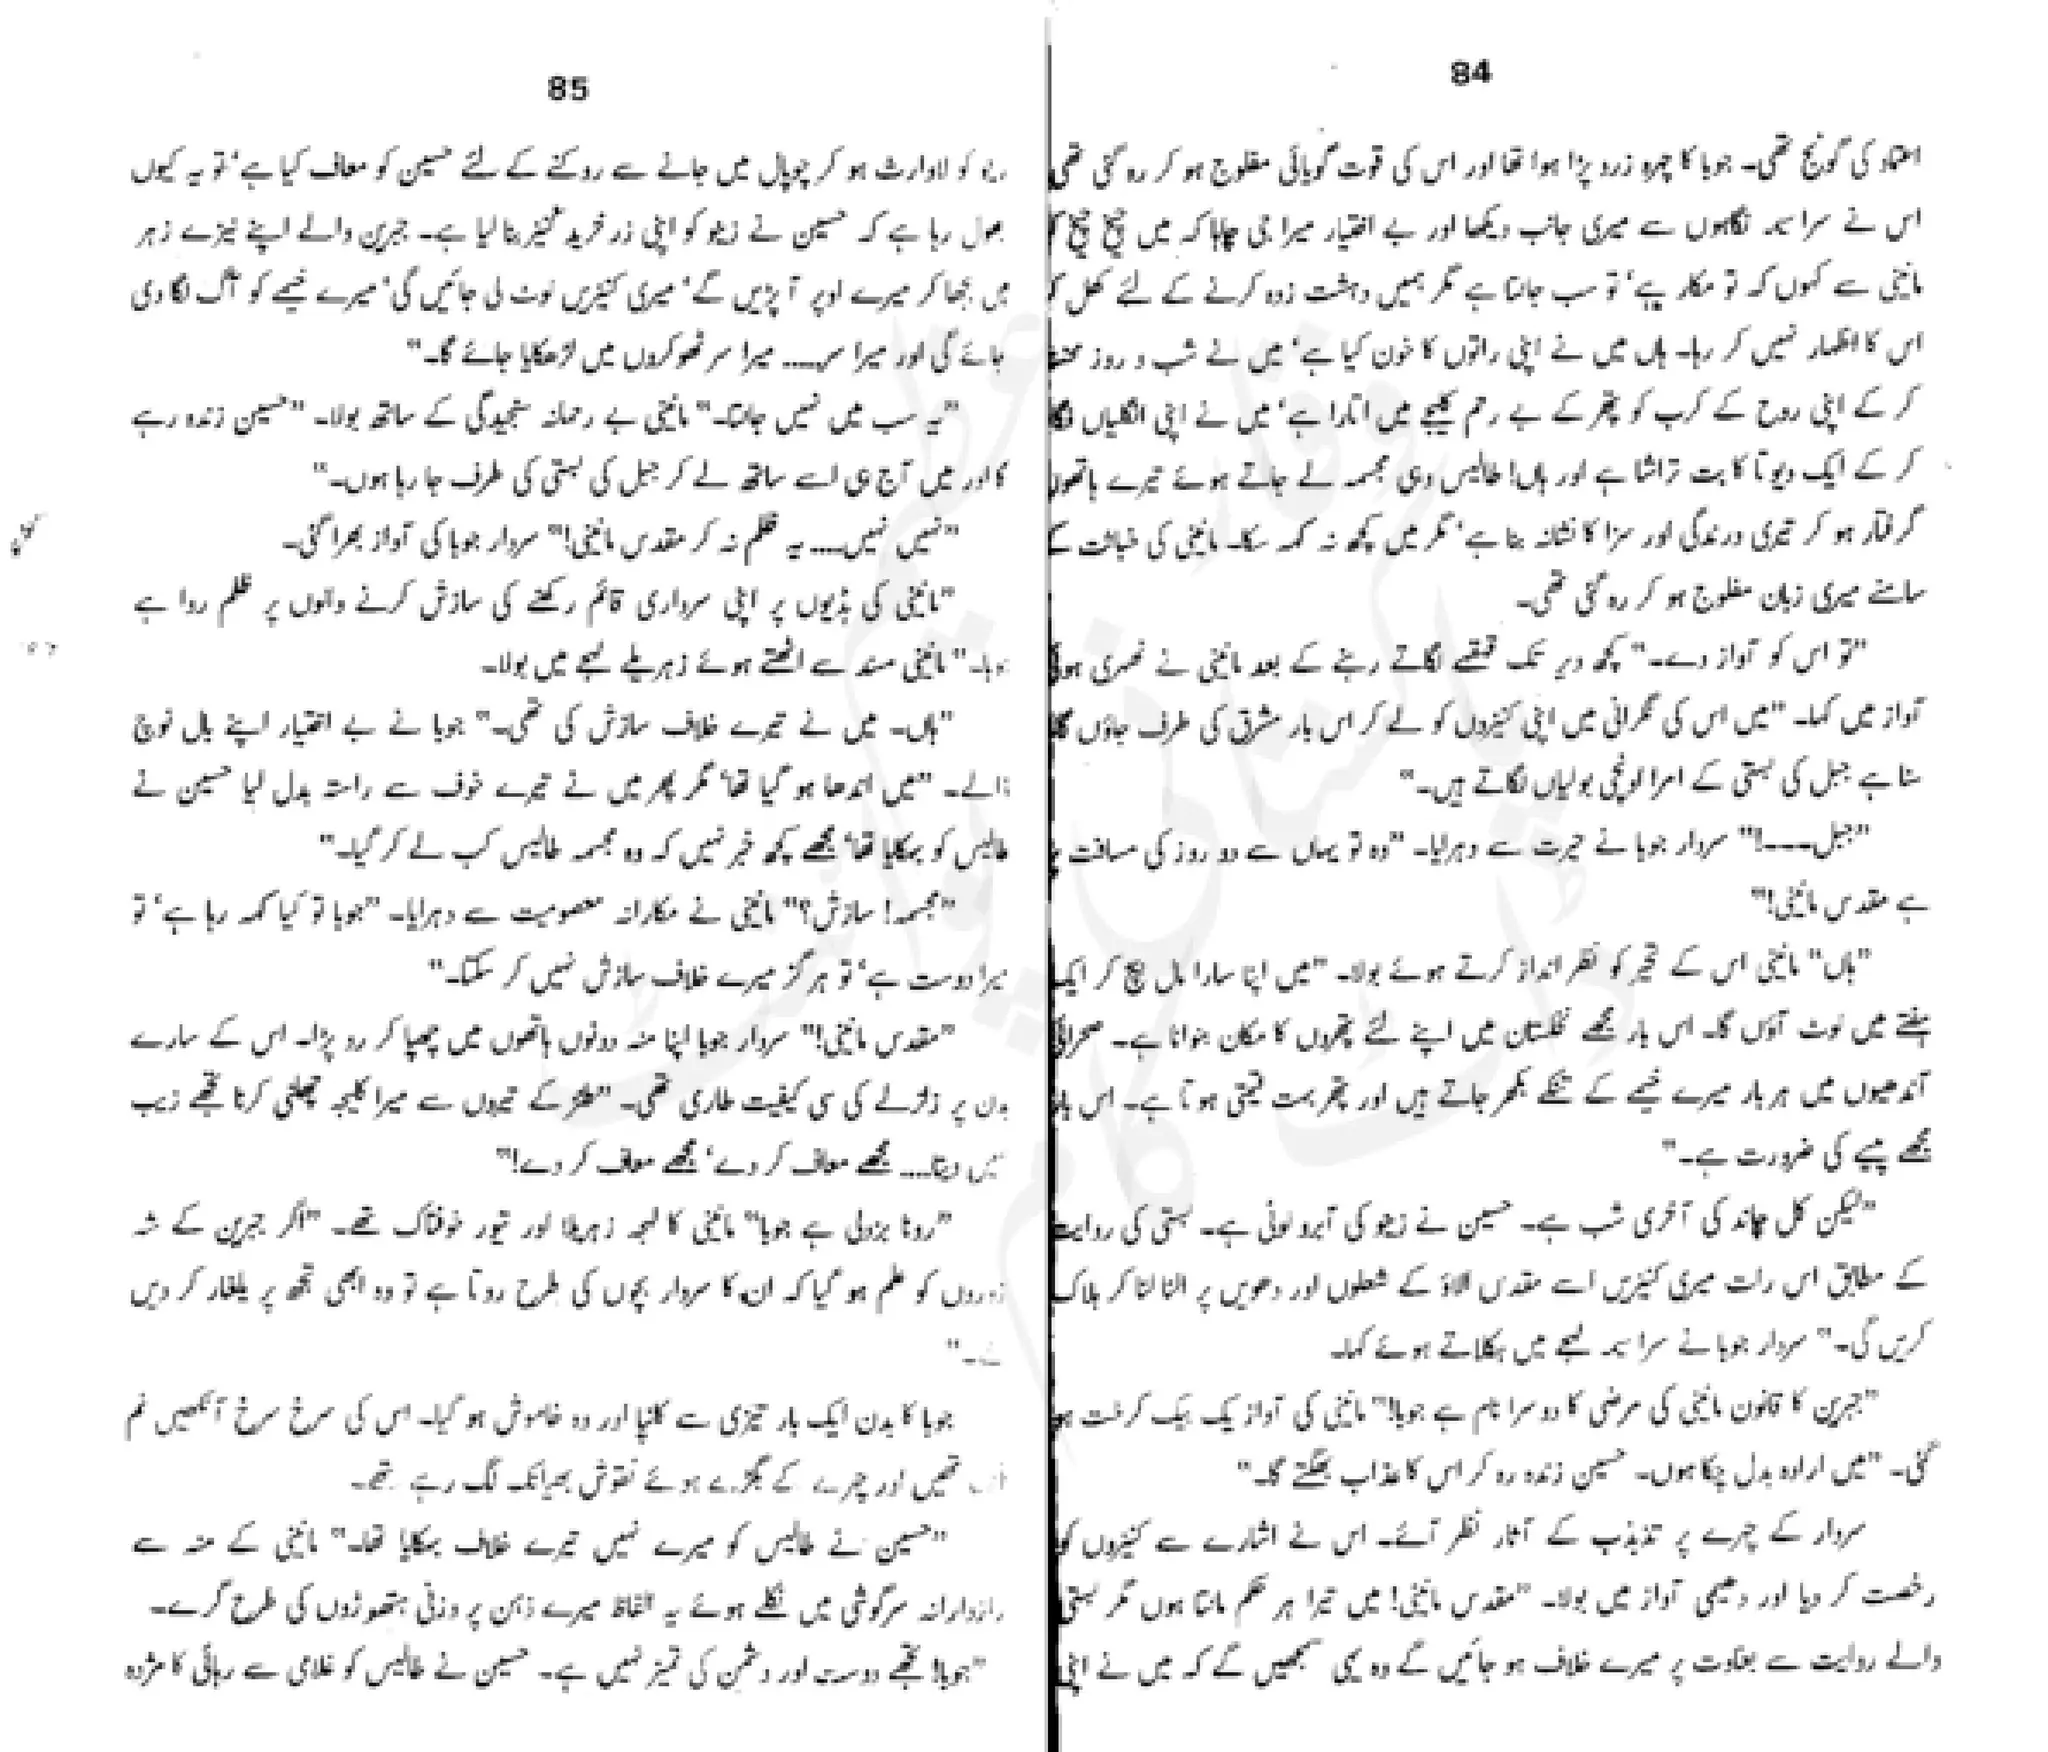 84
اعتماد کی گونج تھی۔ جوبا کا چہرہ زرد پڑا ہوا تھا اور اس کی قوت گویائی مفلوج ہو کر رہ گئی تھی
اس نے سراسیمہ نگاہوں سے میری جانب دیکھا اور بے اختیار میرا جی چاہا کہ میں چیخ چیخ کر
مانیٹی سے کہوں کہ تو مکار ہے، تو سب جانتا ہے مگر ہمیں دہشت زدہ کرنے کے لئے کھل کر
اس کا اظہار نہیں کر رہا۔ ہاں میں نے اپنی راتوں کا خون کیا ہے، میں نے شب و روز محنت
کر کے اپنی روح کے کرب کو پتھر کے بے رحم کلیجے میں اتارا ہے، میں نے اپنی انگلیاں
کر کے ایک دیوتا کا بت تراشا ہے اور ہاں! طالیس وہی مجسمہ لے جاتے ہوئے تیرے ہاتھوں
گرفتار ہو کر تیری درندگی اور سزا کا نشانہ بنا ہے، مگر میں کچھ نہ کہہ سکا۔ مانیٹی کی خباثت کے
سامنے میری زبان مفلوج ہو کر رہ گئی تھی۔
"تو اس کو آواز دے۔" کچھ دیر تک قہقہے لگاتے رہنے کے بعد مانیٹی نے ٹھہری ہوئی
آواز میں کہا۔ "میں اس کی نگرانی میں اپنی کنیزوں کو لے کر اس بار مشرق کی طرف جاؤں گا
سنا ہے جبل کی بستی کے امرا اونچی بولیاں لگاتے ہیں۔"
"جبل۔۔۔۔!" سردار جوبا نے حیرت سے دہرایا۔ "وہ تو یہاں سے دو روز کی مسافت پر
ہے مقدس مانیٹی!"
"ہاں" مانیٹی اس کے تحیر کو نظر انداز کرتے ہوئے بولا۔ "میں اپنا سارا مال بیچ کر ایک
ہفتے میں لوٹ آؤں گا۔ اس بار مجھے نخلستان میں اپنے لئے پتھروں کا مکان بنوانا ہے۔ صحرائی
آندھیوں میں ہر بار میرے خیمے کے تنکے بکھر جاتے ہیں اور پتھر بہت قیمتی ہوتا ہے۔ اس بار
مجھے پیسے کی ضرورت ہے۔"
"لیکن کل چاند کی آخری شب ہے۔ حسین نے زینو کی آبرو لوٹی ہے۔ بستی کی روایت
کے مطابق اس رات میری کنیزیں اسے مقدس الاؤ کے شعلوں اور دھویں پر الٹا لٹا کر ہلاک
کریں گی۔" سردار جوبا نے سراسیمہ لہجے میں ہکلاتے ہوئے کہا۔
"جبرین کا قانون مانیٹی کی مرضی کا دوسرا نام ہے جوبا!" مانیٹی کی آواز یک بیک کرخت ہو
گئی۔ "میں ارادہ بدل چکا ہوں۔ حسین زندہ رہ کر اس کا عذاب بھگتے گا۔"
سردار کے چہرے پر تذبذب کے آثار نظر آئے۔ اس نے اشارے سے کنیزوں کو
رخصت کر دیا اور دھیمی آواز میں بولا۔ "مقدس مانیٹی! میں تیرا ہر حکم مانتا ہوں مگر بستی
والے روایت سے بغاوت پر میرے خلاف ہو جائیں گے وہ یہی سمجھیں گے کہ میں نے اپنی
85
زینو کو لاوارث ہو کر چوپال میں جانے سے روکنے کے لئے حسین کو معاف کیا ہے، تو یہ کیوں
بھول رہا ہے کہ حسین نے زینو کو اپنی زر خرید کنیز بنا لیا ہے۔ جبرین والے اپنے نیزے زہر
میں بجھا کر میرے اوپر آ پڑیں گے، میری کنیزیں لوٹ لی جائیں گی، میرے خیمے کو آگ لگا دی
جائے گی اور میرا سر۔۔۔۔ میرا سر ٹھوکروں میں لڑھکایا جائے گا۔"
"یہ سب میں نہیں جانتا۔" مانیٹی بے رحمانہ سنجیدگی کے ساتھ بولا۔ "حسین زندہ رہے
گا اور میں آج ہی اسے ساتھ لے کر جبل کی بستی کی طرف جا رہا ہوں۔"
"نہیں نہیں۔۔۔۔ یہ ظلم نہ کر مقدس مانیٹی!" سردار جوبا کی آواز بھرا گئی۔
"مانیٹی کی ہڈیوں پر اپنی سرداری قائم رکھنے کی سازش کرنے والوں پر ظلم روا ہے
جوبا۔" مانیٹی مسند سے اٹھتے ہوئے زہریلے لہجے میں بولا۔
"ہاں۔ میں نے تیرے خلاف سازش کی تھی۔" جوبا نے بے اختیار اپنے بال نوچ
ڈالے۔ "میں اندھا ہو گیا تھا، مگر پھر میں نے تیرے خوف سے راستہ بدل لیا حسین نے
طالیس کو بہکایا تھا، مجھے کچھ خبر نہیں کہ وہ مجسمہ طالیس کب لے کر گیا۔"
"مجسمہ! سازش؟" مانیٹی نے مکارانہ معصومیت سے دہرایا۔ "جوبا تو کیا کہہ رہا ہے، تو
میرا دوست ہے، تو ہرگز میرے خلاف سازش نہیں کر سکتا۔"
"مقدس مانیٹی!" سردار جوبا اپنا منہ دونوں ہاتھوں میں چھپا کر رو پڑا۔ اس کے سارے
بدن پر زلزلے کی سی کیفیت طاری تھی۔ "طنز کے تیروں سے میرا کلیجہ چھلنی کرنا تجھے زیب
نہیں دیتا۔۔۔۔ مجھے معاف کر دے، مجھے معاف کر دے!"
"رونا بزدلی ہے جوبا" مانیٹی کا لہجہ زہریلا اور تیور خوفناک تھے۔ "اگر جبرین کے شہ
زوروں کو علم ہو گیا کہ ان کا سردار بچوں کی طرح روتا ہے تو وہ ابھی تجھ پر یلغار کر دیں
گے۔"
جوبا کا بدن ایک بار تیزی سے کانپا اور وہ خاموش ہو گیا۔ اس کی سرخ سرخ آنکھیں نم
تھیں اور چہرے کے بگڑے ہوئے نقوش بھیانک لگ رہے تھے۔
"حسین نے طالیس کو میرے نہیں تیرے خلاف بہکایا تھا۔" مانیٹی کے منہ سے
رازدارانہ سرگوشی میں نکلے ہوئے یہ الفاظ میرے ذہن پر وزنی ہتھوڑوں کی طرح گرے۔
"جوبا! تجھے دوست اور دشمن کی تمیز نہیں ہے۔ حسین نے طالیس کو غلامی سے رہائی کا مژدہ